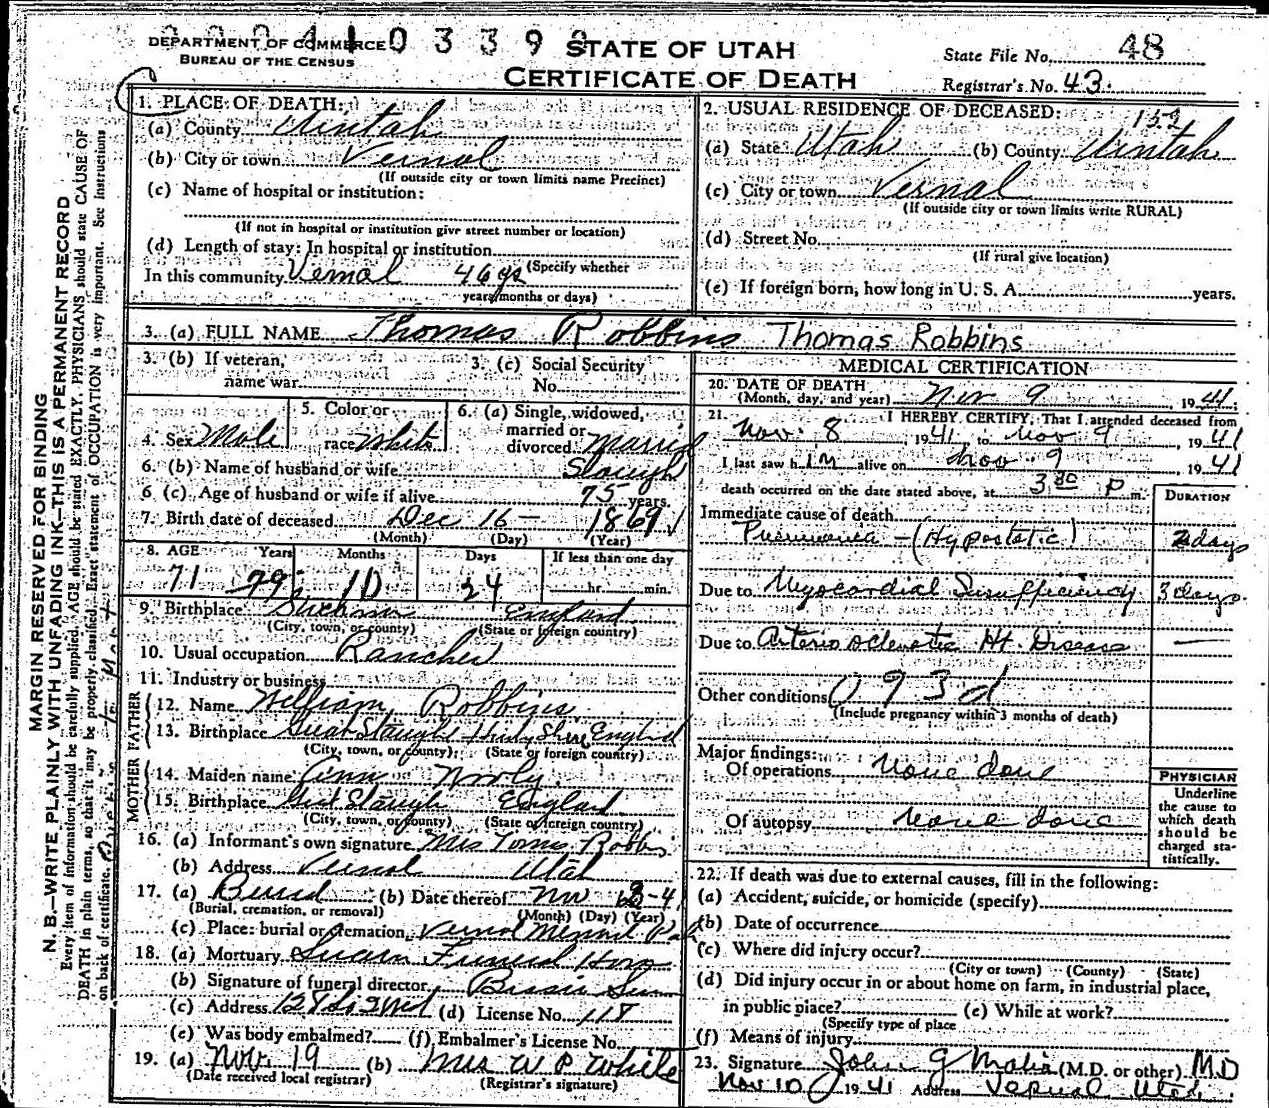 DEPARTMENT OF COMMERCE
BUREAU OF THE CENSUS
0 3 3 9
STATE OF UTAH
CERTIFICATE OF DEATH
State File No. 48
Registrar's No. 43.
MARGIN RESERVED FOR BINDING
N. B.—WRITE PLAINLY WITH UNFADING INK—THIS IS A PERMANENT RECORD
Every item of information should be carefully supplied. AGE should be stated EXACTLY. PHYSICIANS should state CAUSE OF
DEATH in plain terms, so that it may be properly classified. Exact statement of OCCUPATION is very important. See Instructions
on back of certificate.
1. PLACE OF DEATH:
(a) County Uintah
(b) City or town Vernal
(If outside city or town limits name Precinct)
(c) Name of hospital or institution:
(If not in hospital or institution give street number or location)
(d) Length of stay: In hospital or institution
(Specify whether
In this community Vernal 46 yrs
years, months or days)
2. USUAL RESIDENCE OF DECEASED:
(a) State Utah (b) County Uintah
(c) City or town Vernal
(If outside city or town limits write RURAL)
(d) Street No.
(If rural give location)
(e) If foreign born, how long in U. S. A. years.
3. (a) FULL NAME Thomas Robbins Thomas Robbins
3. (b) If veteran,
name war
3. (c) Social Security
No.
4. Sex Male
5. Color or
race White
6. (a) Single, widowed,
married or
divorced Married
6. (b) Name of husband or wife Slaugh
6 (c). Age of husband or wife if alive 75 years
7. Birth date of deceased Dec 16 — 1869
(Month) (Day) (Year)
8. AGE Years Months Days If less than one day
71 10 24 hr. min.
9. Birthplace England
(City, town, or county) (State or foreign country)
10. Usual occupation Rancher
11. Industry or business
FATHER
12. Name William Robbins
13. Birthplace England
(City, town, or county) (State or foreign country)
MOTHER
14. Maiden name Ann
15. Birthplace England
(City, town, or county) (State or foreign country)
16. (a) Informant's own signature Mrs Robbins
(b) Address Vernal Utah
17. (a) Burial (b) Date thereof Nov
(Burial, cremation, or removal) (Month) (Day) (Year)
(c) Place: burial or cremation Vernal Memorial Park
18. (a) Mortuary Swain Funeral Home
(b) Signature of funeral director
(c) Address (d) License No. 118
(e) Was body embalmed? (f) Embalmer's License No.
19. (a) Nov. 19 (b) Mrs W P White
(Date received local registrar) (Registrar's signature)
MEDICAL CERTIFICATION
20. DATE OF DEATH
(Month, day, and year) Nov 9, 1941.
21. I HEREBY CERTIFY, That I attended deceased from
Nov. 8 1941, to Nov 9, 1941
I last saw him alive on Nov. 9, 1941
death occurred on the date stated above, at 3:30 P m.
DURATION
Immediate cause of death
Pneumonia — (Hypostatic) 2 days
Due to Myocardial Insufficiency 3 days.
Due to Arteriosclerotic Ht. Disease —
Other conditions 93d
(Include pregnancy within 3 months of death)
Major findings:
Of operations None done
Of autopsy None done
PHYSICIAN
Underline
the cause to
which death
should be
charged sta-
tistically.
22. If death was due to external causes, fill in the following:
(a) Accident, suicide, or homicide (specify)
(b) Date of occurrence
(c) Where did injury occur?
(City or town) (County) (State)
(d) Did injury occur in or about home on farm, in industrial place,
in public place? (e) While at work?
(Specify type of place
(f) Means of injury
23. Signature John G Malia (M.D. or other) M.D
Nov 10, 1941 Address Vernal Utah